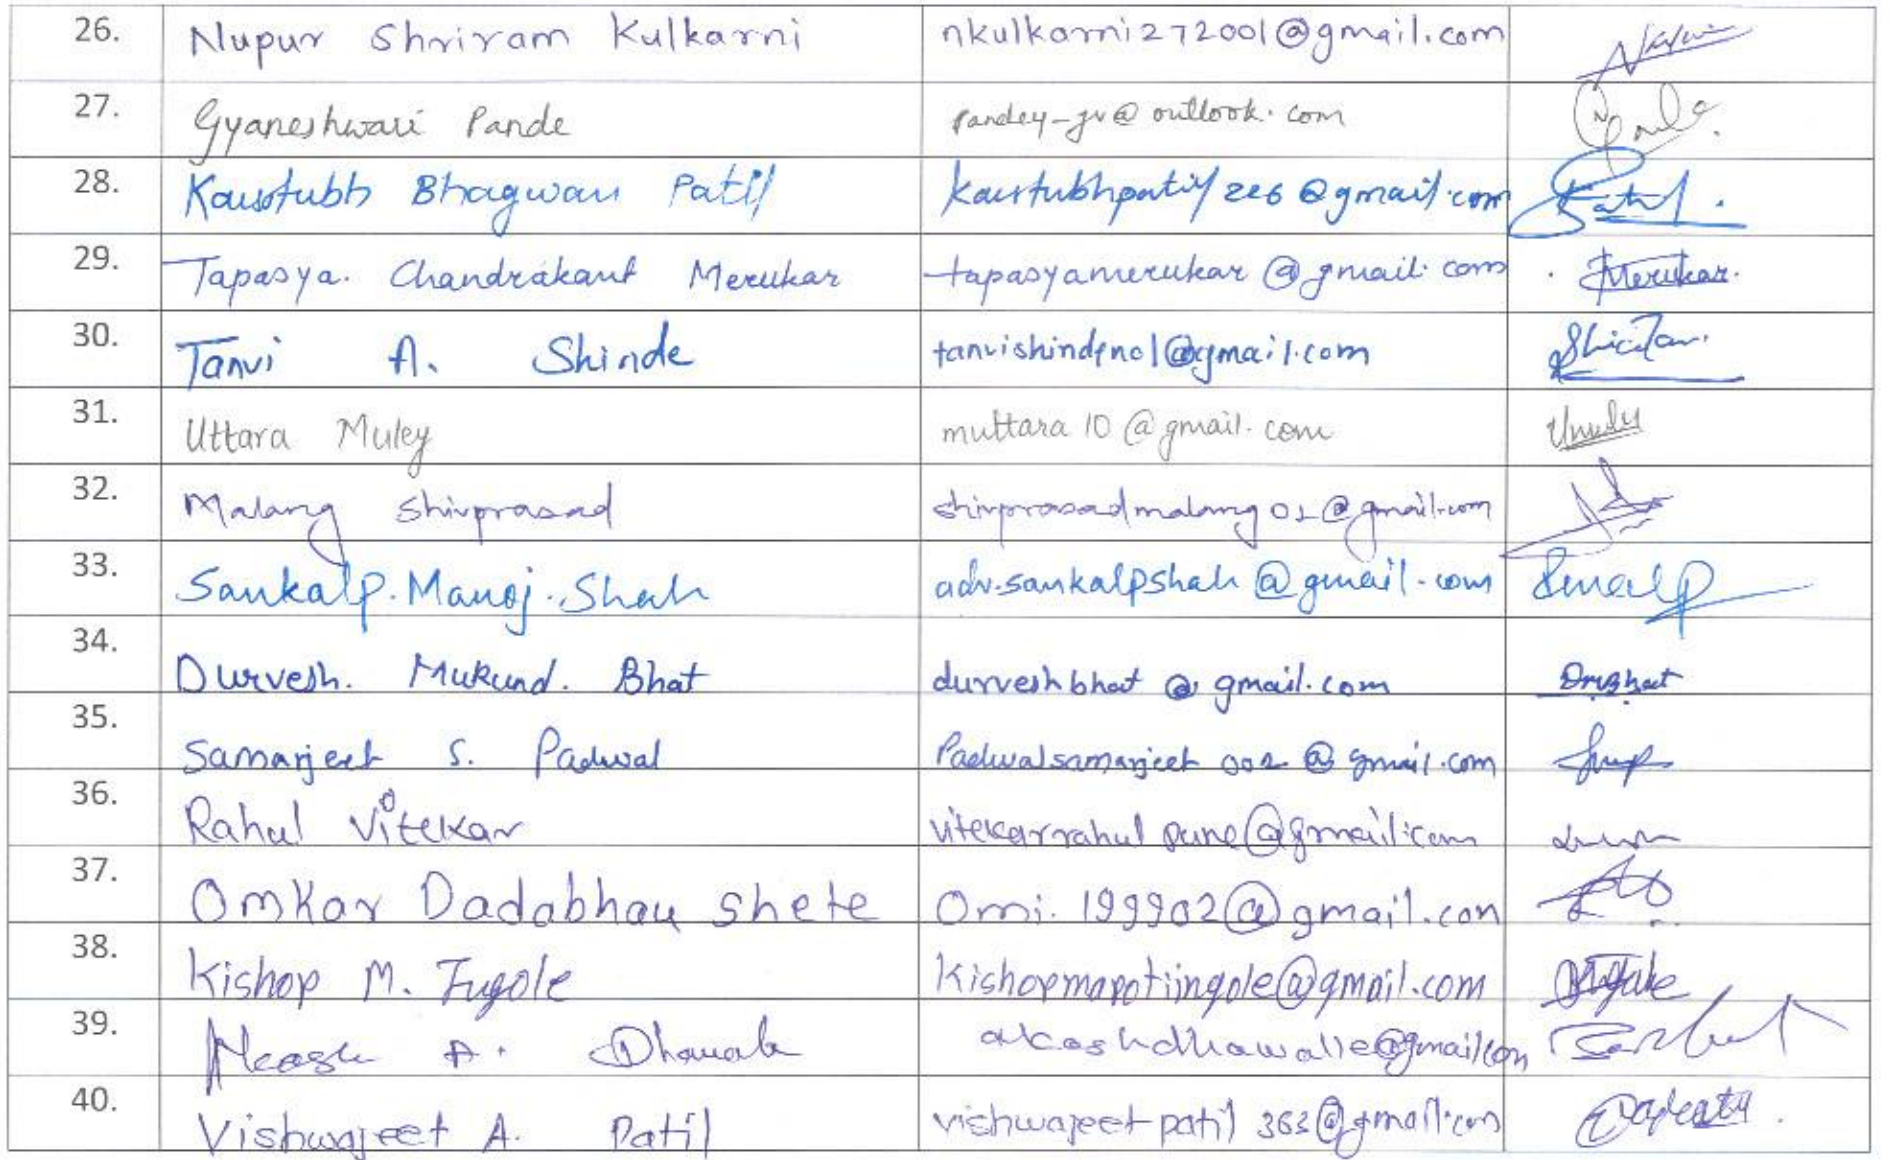 26. Nupur Shriram Kulkarni nkulkarni272001@gmail.com
27. Gyaneshwari Pande pandey-jv@outlook.com
28. Kaustubh Bhagwan Patil kaustubhpatil226@gmail.com
29. Tapasya. Chandrakant Merukar tapasyamerukar@gmail.com Merukar.
30. Tanvi A. Shinde @gmail.com
31. Uttara Muley muttara10@gmail.com
32. Malang Shivprasad shivprasadmalang01@gmail.com
33. Sankalp. Manoj. Shah adv.sankalpshah@gmail.com
34. Durvesh. Mukund. Bhat durveshbhat@gmail.com
35. Samarjeet S. Padwal Padwalsamarjeet002@gmail.com
36. Rahul Vitekar vitekarrahulpune@gmail.com
37. Omkar Dadabhau Shete Omi.199902@gmail.con
38. Kishor M. Ingole Kishormarotiingole@gmail.com
39. Akash A. akashdhawalle@gmail.com
40. Vishwajeet A. Patil vishwajeetpatil363@gmail.com